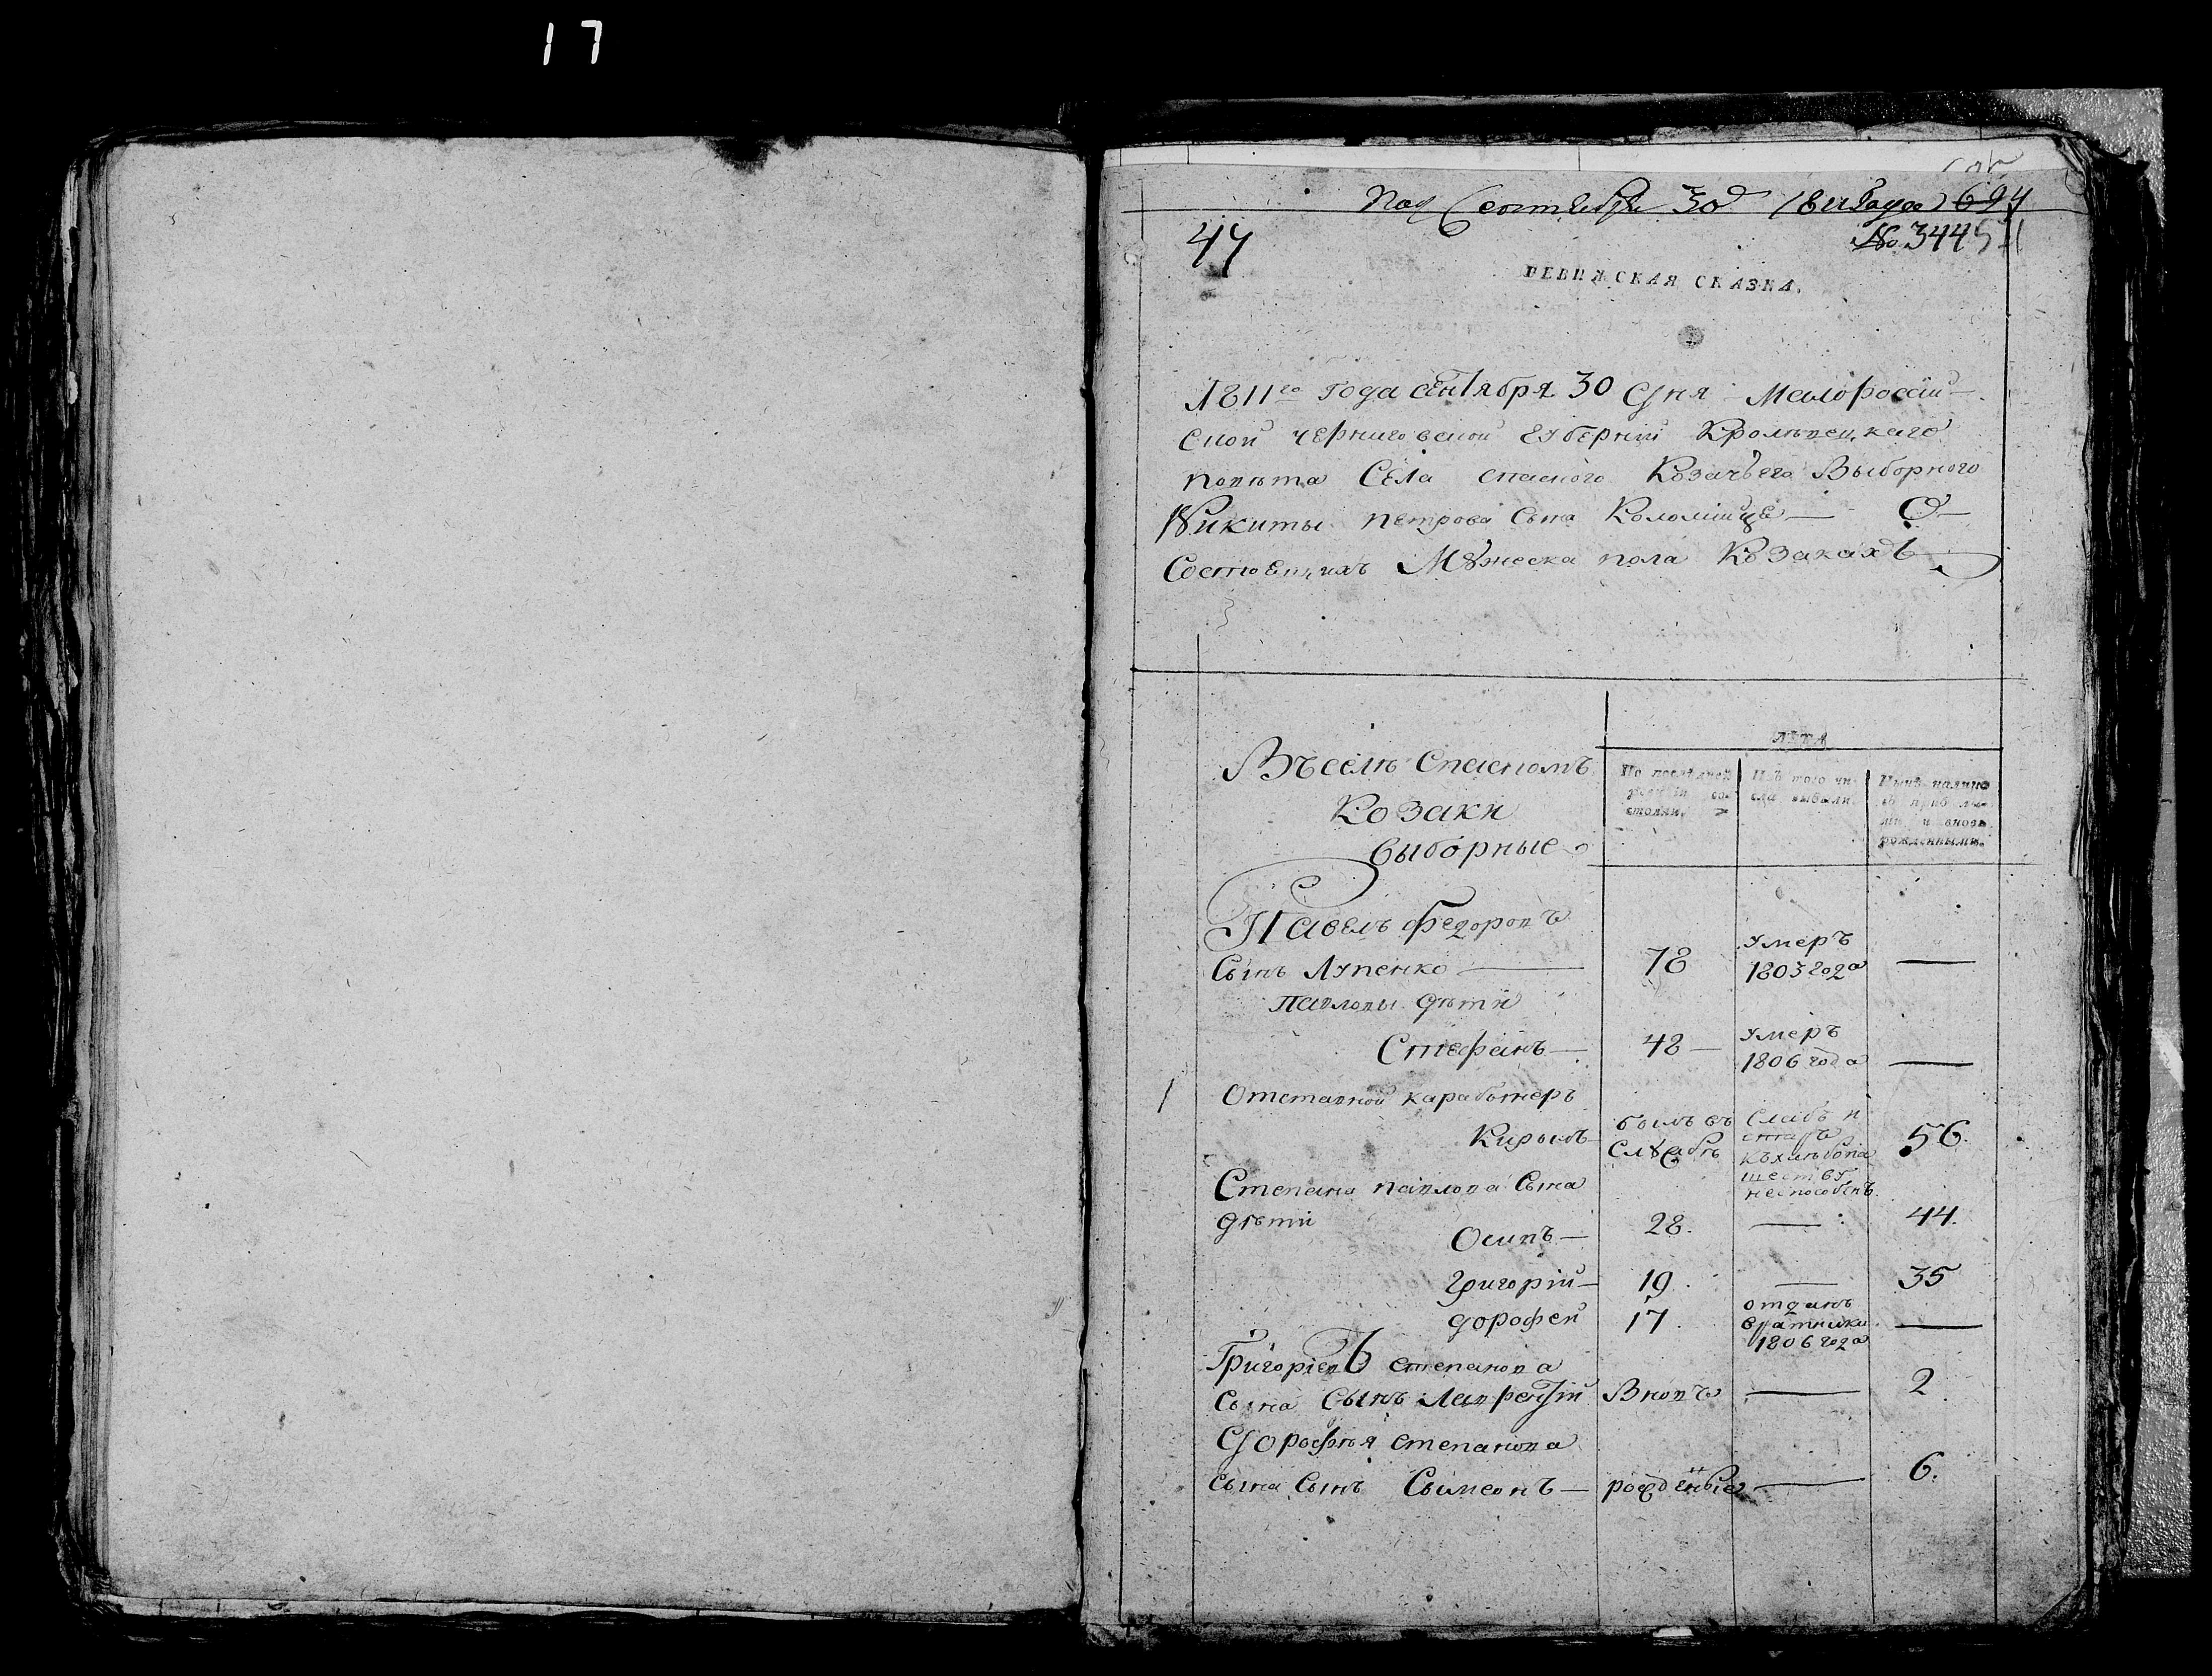 17
Сентября 30 1811 года 624
44
№ 344
РЕВИЖСКАЯ СКАЗКА.
1811го года сентября 30 дня Малороссій-
ской черниговской губерніи Кролѣвецкаго
повѣта Села спаского Козачьего Выборного
Никиты петрова сына Коломійця — О
Состоящихъ Мужеска пола Козакахъ
Въ селѣ Спаскомъ
Козаки
выборные
ЛѢТА
По послѣдней
ревизіи со-
стояли.
Изъ того чи-
сла выбыли
Нынѣ налицо
съ прибылы-
ми и вновь
рожденными.
Павелъ федоровъ
Сынъ Лупенко — 78 умеръ 1803 года —
Павловы дѣти
Стефанъ — 48 — умеръ 1806 года —
1 Отставной карабынеръ
Кирылъ былъ въ службѣ слабъ и старъ къ хлѣбопашеству неспособенъ 56.
Степана павлова Сына
дѣти
Осипъ — 28. — 44.
Григорій — 19. — 35
дорофей 17. отданъ вратники 1806 года —
Григоріевъ степанова
Сына Сынъ Лаврентій Вновь — 2
Дорофѣя степанова
сына Сынъ Сымеонъ — рожденые — 6.